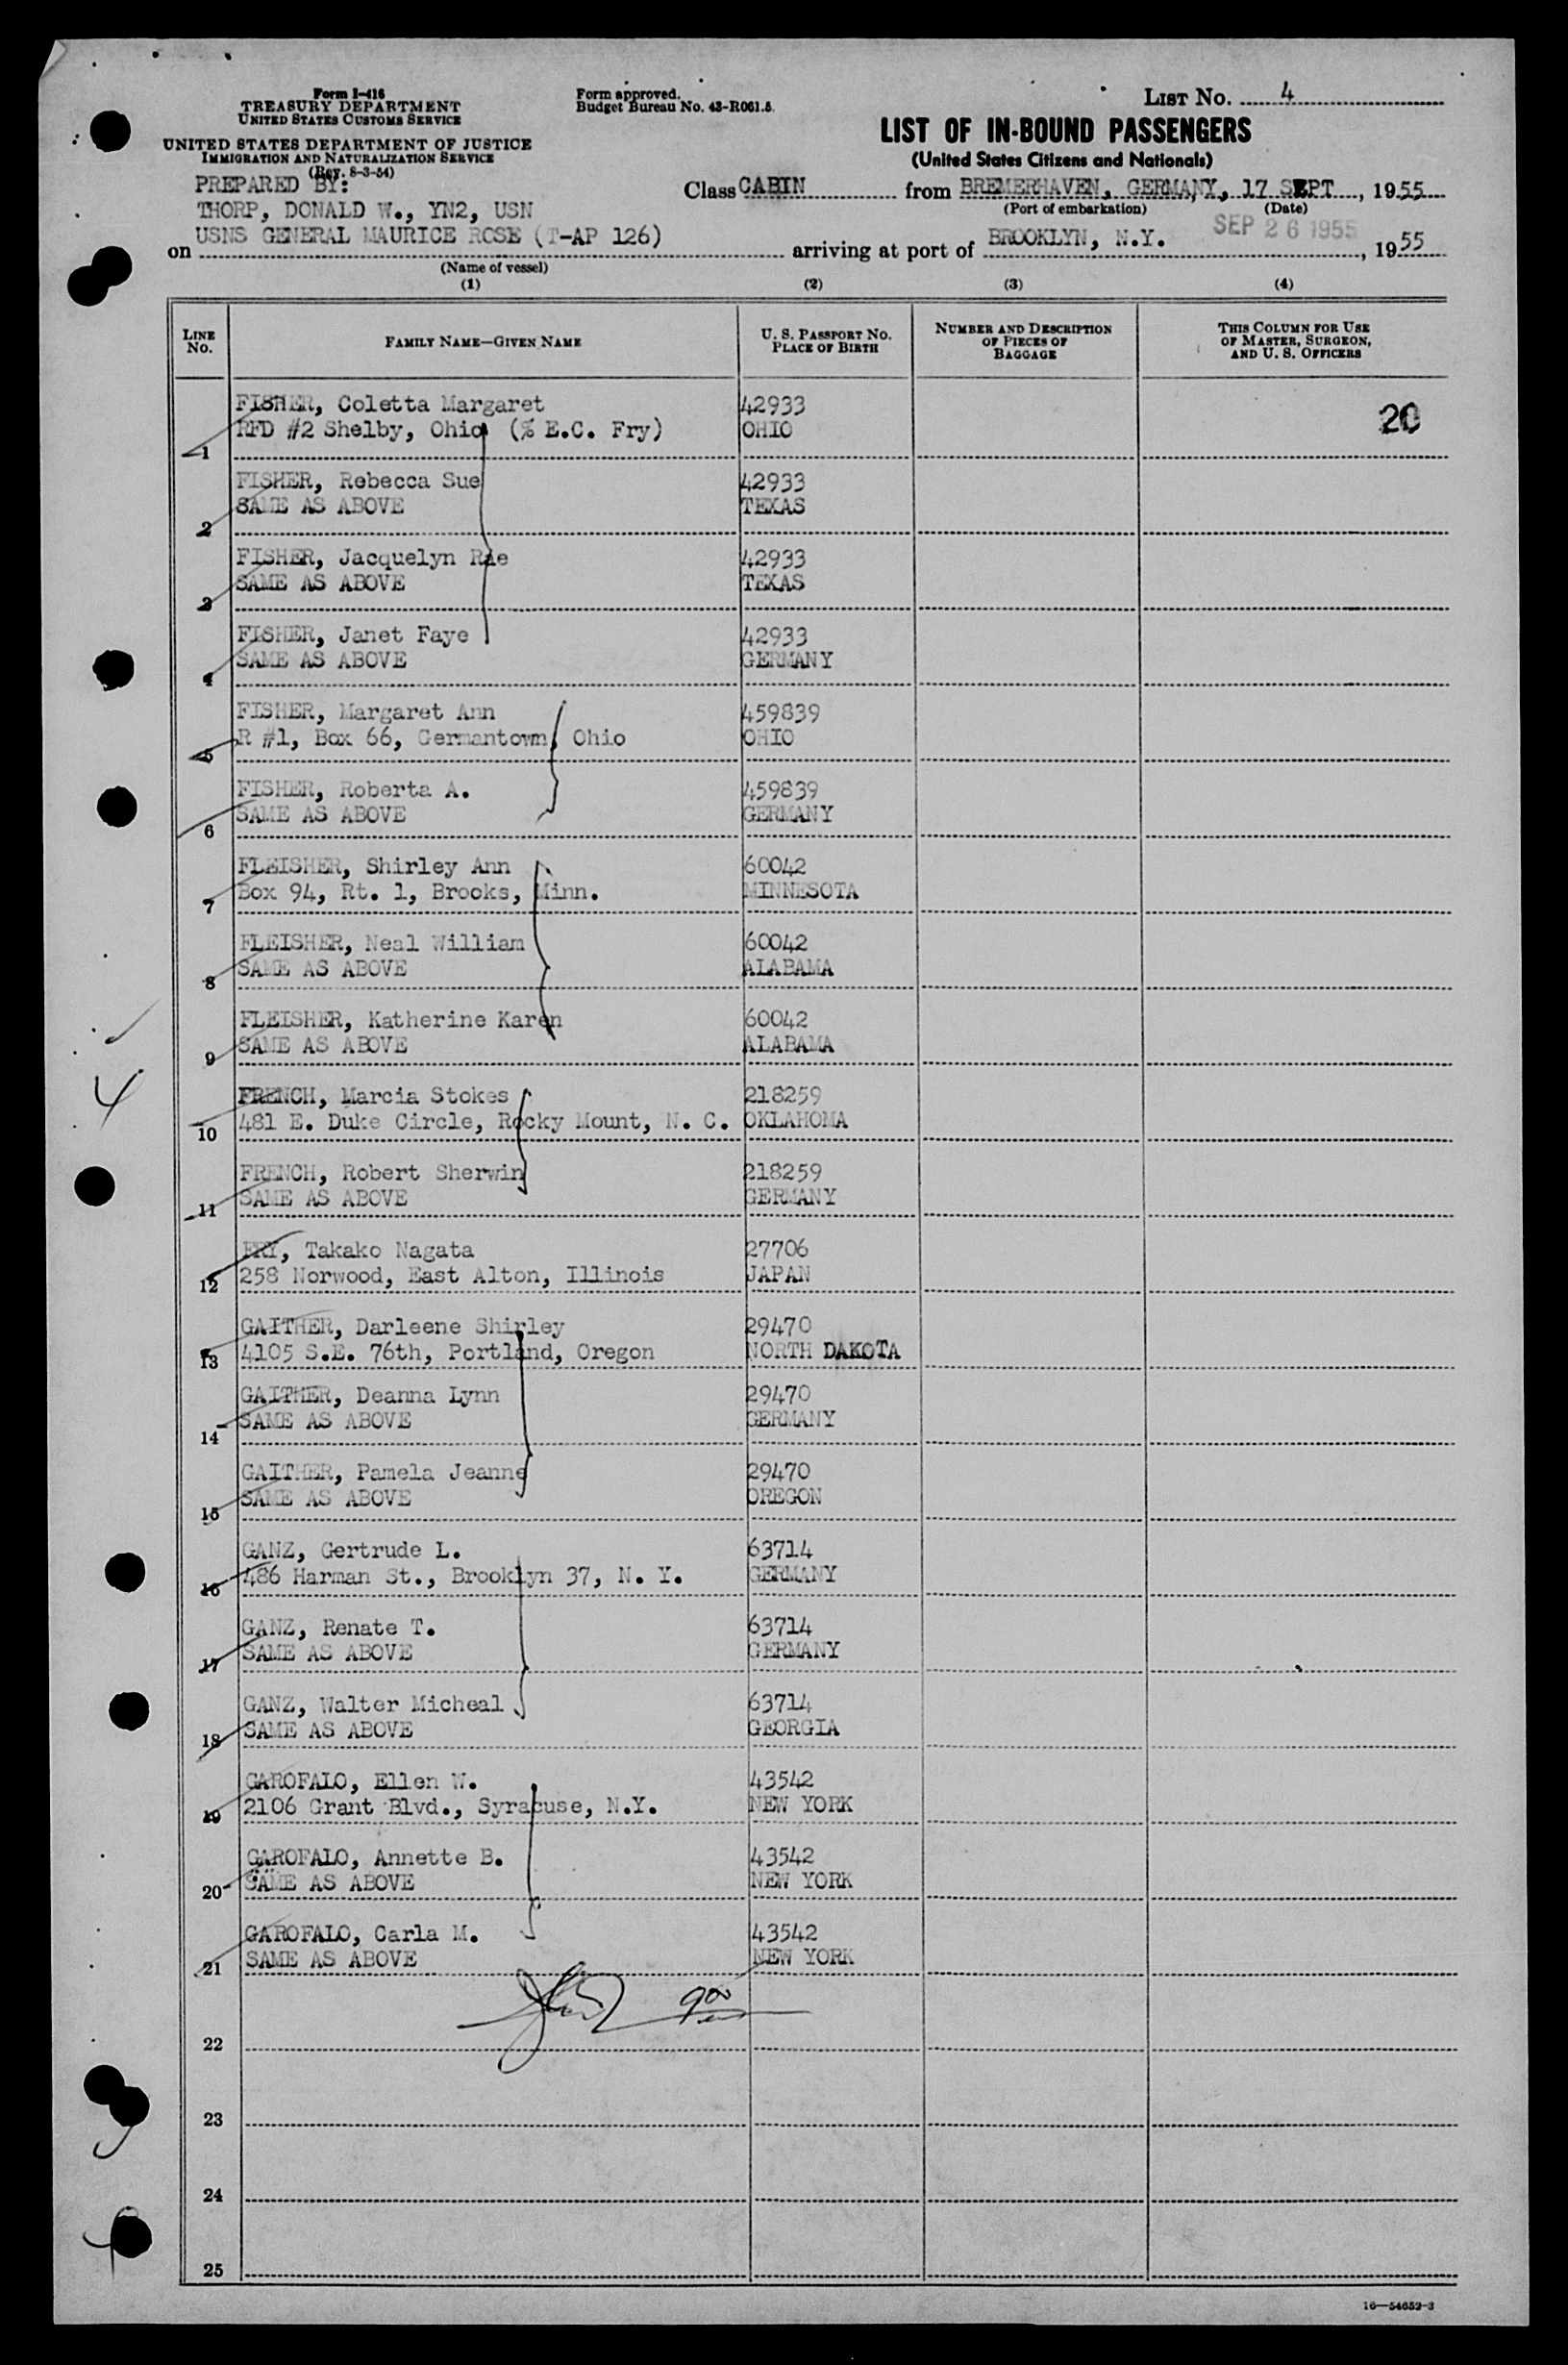 Form I-416
TREASURY DEPARTMENT
UNITED STATES CUSTOMS SERVICE
UNITED STATES DEPARTMENT OF JUSTICE
IMMIGRATION AND NATURALIZATION SERVICE
(Rev. 8-3-54)
Form approved.
Budget Bureau No. 43-R061.5.
LIST NO. 4
LIST OF IN-BOUND PASSENGERS
(United States Citizens and Nationals)
PREPARED BY:
THORP, DONALD W., YN2, USN
Class CABIN from BREMERHAVEN, GERMANY, 17 SEPT, 1955
(Port of embarkation) (Date)
on USNS GENERAL MAURICE ROSE (T-AP 126) arriving at port of BROOKLYN, N.Y. SEP 26 1955, 1955
(Name of vessel)
(1) (2) (3) (4)
LINE NO. FAMILY NAME—GIVEN NAME U. S. PASSPORT NO. PLACE OF BIRTH NUMBER AND DESCRIPTION OF PIECES OF BAGGAGE THIS COLUMN FOR USE OF MASTER, SURGEON, AND U. S. OFFICERS
FISHER, Coletta Margaret 42933
20
1 RFD #2 Shelby, Ohio (% E.C. Fry) OHIO
FISHER, Rebecca Sue 42933
2 SAME AS ABOVE TEXAS
FISHER, Jacquelyn Rae 42933
3 SAME AS ABOVE TEXAS
FISHER, Janet Faye 42933
4 SAME AS ABOVE GERMANY
FISHER, Margaret Ann 459839
5 R #1, Box 66, Germantown, Ohio OHIO
FISHER, Roberta A. 459839
6 SAME AS ABOVE GERMANY
FLEISHER, Shirley Ann 60042
7 Box 94, Rt. 1, Brooks, Minn. MINNESOTA
FLEISHER, Neal William 60042
8 SAME AS ABOVE ALABAMA
FLEISHER, Katherine Karen 60042
9 SAME AS ABOVE ALABAMA
4
FRENCH, Marcia Stokes 218259
10 481 E. Duke Circle, Rocky Mount, N. C. OKLAHOMA
FRENCH, Robert Sherwin 218259
11 SAME AS ABOVE GERMANY
FRY, Takako Nagata 27706
12 258 Norwood, East Alton, Illinois JAPAN
GAITHER, Darleene Shirley 29470
13 4105 S.E. 76th, Portland, Oregon NORTH DAKOTA
GAITHER, Deanna Lynn 29470
14 SAME AS ABOVE GERMANY
GAITHER, Pamela Jeanne 29470
15 SAME AS ABOVE OREGON
GANZ, Gertrude L. 63714
16 486 Harman St., Brooklyn 37, N. Y. GERMANY
GANZ, Renate T. 63714
17 SAME AS ABOVE GERMANY
GANZ, Walter Micheal 63714
18 SAME AS ABOVE GEORGIA
GAROFALO, Ellen W. 43542
19 2106 Grant Blvd., Syracuse, N.Y. NEW YORK
GAROFALO, Annette B. 43542
20 SAME AS ABOVE NEW YORK
GAROFALO, Carla M. 43542
21 SAME AS ABOVE NEW YORK
22
23
24
25
16—54652-3